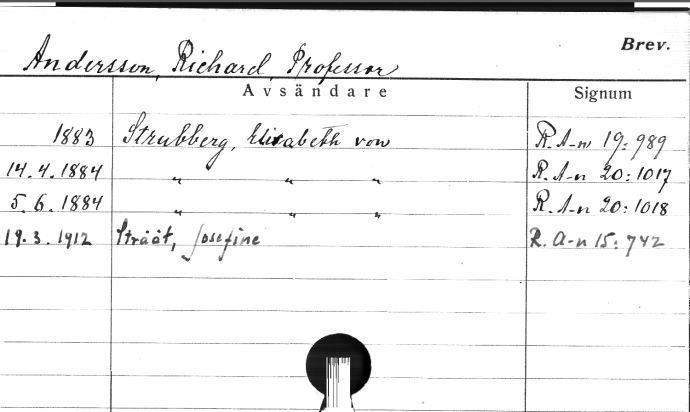 Brev.
Andersson, Richard, Professor
Avsändare Signum
1883 Strubberg, Elisabeth von R. A-n 19: 989
14.4.1884 " " " R. A-n 20: 1017
5.6.1884 " " " R. A-n 20: 1018
19.3.1912 Strååt, Josefine R. A-n 15: 742